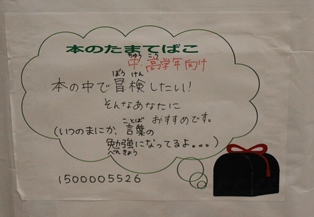 本のたまてばこ
中高学年向け
本の中で冒険したい!
そんなあなたに
おすすめです。
(いつのまにか、言葉の
勉強になってるよ。。。)
1500005526